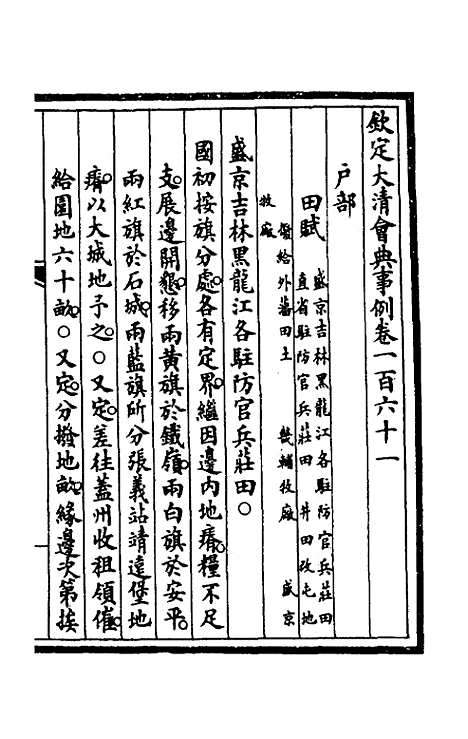 欽定大清會典事例卷一百六十一
戶部
田賦
盛京吉林黑龍江各駐防官兵莊田
直省駐防官兵莊田 井田改屯地
撥給外藩田土 畿輔牧廠 盛京
牧廠
盛京吉林黑龍江各駐防官兵莊田○
國初按旗分處各有定界繼因邊內地瘠糧不足
支展邊開懇移兩黃旗於鐵嶺兩白旗於安平
兩紅旗於石城兩藍旗所分張義站靖遠堡地
瘠以大城地予之○又定差往蓋州收租領催
給園地六十畝○又定分撥地畝緣邊次第挨